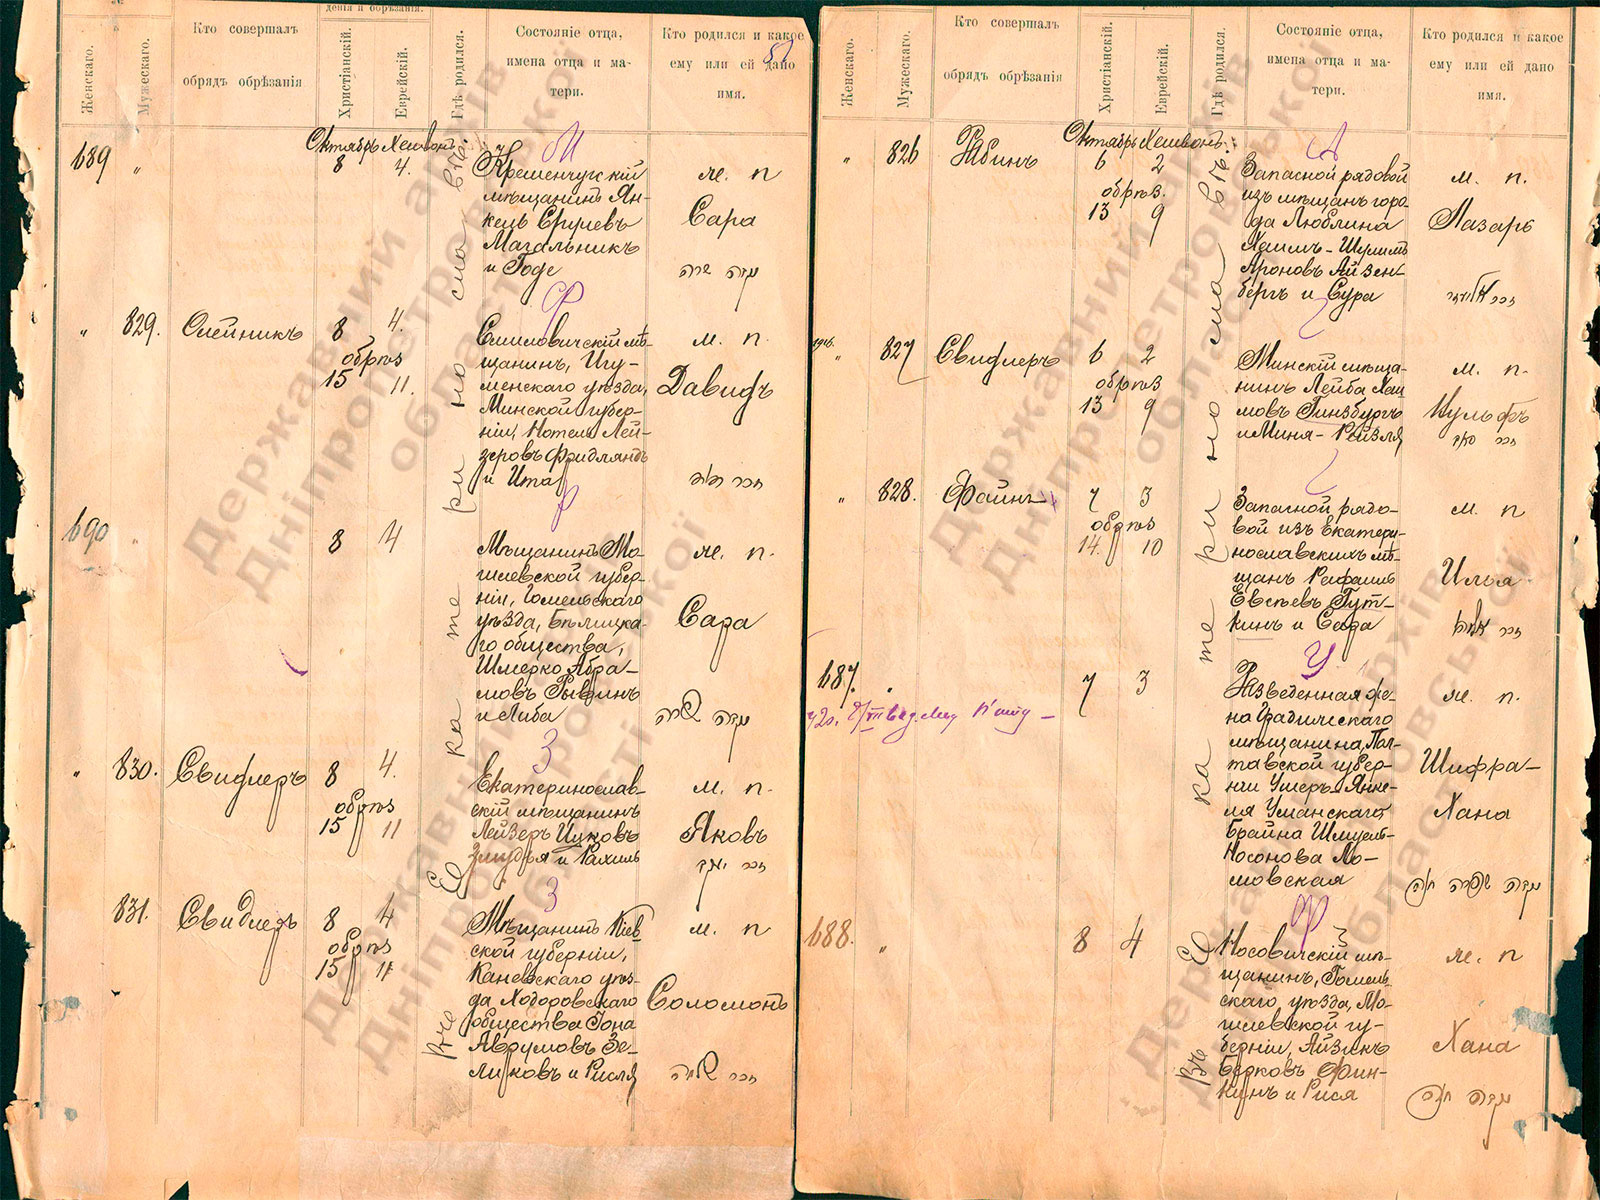 Женскаго.
Мужескаго.
Кто совершалъ
обрядъ обрѣзанія
дѣнія и обрѣзанія.
Христіанскій.
Еврейскій.
Гдѣ родился.
Состояніе отца,
имена отца и ма-
тери.
Кто родился и какое
ему или ей дано
имя.
Октябрь Хешвонъ
689 " 8 4.
Кременчугскій
мѣщанинъ Ян-
кель Сруиевъ
Магальникъ
и Годе
Сара
" 829. Олейникъ 8 4.
обрѣз
15 11.
мѣ-
щанинъ, Игу-
менскаго уѣзда,
Минской губер-
ніи, Нотель Лей-
зеровъ Фридляндъ
и Ита
м. п.
Давидъ
690 " 8 4
Мѣщанинъ Мо-
гилевской губер-
ніи, Гомельскаго
уѣзда, Бѣлицка-
го общества,
Шмерко Абра-
мовъ Рывкинъ
и Либа
п.
Сара
" 830. Свидлеръ 8 4.
обрѣз
15 11
Екатеринослав-
скій мѣщанинъ
Лейзеръ Ицковъ
и Рахиль
м. п.
Яковъ
831. Свидлеръ 8 4
обрѣз
15 11
Мѣщанинъ Кіев-
ской губерніи,
Каневскаго уѣз-
да, Ходоровскаго
общества Іона
Аврумовъ Зе-
ликовъ и Рисля
м. п
Соломонъ
Въ Екатеринославѣ.
Женскаго.
Мужескаго.
Кто совершалъ
обрядъ обрѣзанія
Христіанскій.
Еврейскій.
Гдѣ родился.
Состояніе отца,
имена отца и ма-
тери.
Кто родился и какое
ему или ей дано
имя.
Октябрь Хешвонъ
" 826 Рабинъ 6 2
обрѣз.
13 9
Запасной рядовой
изъ мѣщанъ горо-
да Люблина
Хаимъ-Шулимъ
Ароновъ Айзен-
бергъ и Сура
м. п.
Лазарь
" 827 Свидлеръ 6 2
обрѣз
13 9
Минскій мѣща-
нинъ Лейба Хаи-
мовъ Гинзбургъ
и Миня-Рейзля
м. п.
Вульфъ
" 828. Файнъ 7 3
обрѣз
14. 10
Запасной рядо-
вой изъ Екатери-
нославскихъ мѣ-
щанъ Рафаилъ
Евсѣевъ Гут-
кинъ и Сара
м. п
Илья
687. " 7 3
Разведенная же-
на Градижскаго
мѣщанина, Пол-
тавской губер-
ніи Ушеръ Янке-
ля Уманскаго,
Брайна Шмуель-
Носонова Ло-
мовская
п.
Шифра-
Хана
688. " 8 4
Носовичскій мѣ-
щанинъ, Гомель-
скаго уѣзда, Мо-
гилевской гу-
берніи, Айзикъ
Берковъ Фин-
кинъ и Рися
п
Хана
Въ Екатеринославѣ.
Державний архів
Дніпропетровської
області